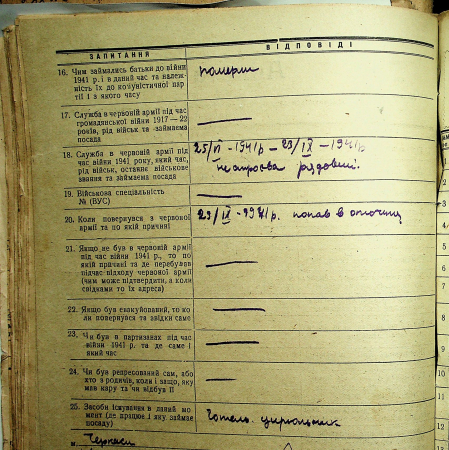 ЗАПИТАННЯ
ВІДПОВІДІ
16. Чим займались батьки до війни
1941 р. і в даний час та належ-
ність їх до комуністичної пар-
тії і з якого часу
померли
17. Служба в червоній армії під час
громадянської війни 1917—22
років, рід військ та займаема
посада
18. Служба в червоній армії під
час війни 1941 року, який час,
рід військ, останнє військове
звання та займаема посада
25/VI - 1941р - 23/IX - 1941р
рядовий.
19. Військова спеціальність
№ (ВУС)
20. Коли повернувся з червоної
армії та по якій причині
23/IX - 1941 р. попав в
21. Якщо не був в червоній армії
під час війни 1941 р., то по
якій причині та де перебував
підчас відходу червоної армії
(чим може підтвердити, а коли
свідками то їх адреса)
22. Якщо був евакуйований, то ко
ли повернувся та звідки саме
23. Чи був в партизанах під час
війни 1941 р. та де саме і
який час
24. Чи був репресований сам, або
хто з родичів, коли і защо, яку
мав кару та чи відбув її
25. Засоби існування в даний мо
мент (де працює і яку займає
посаду)
Готель. цирюльник
Черкаси